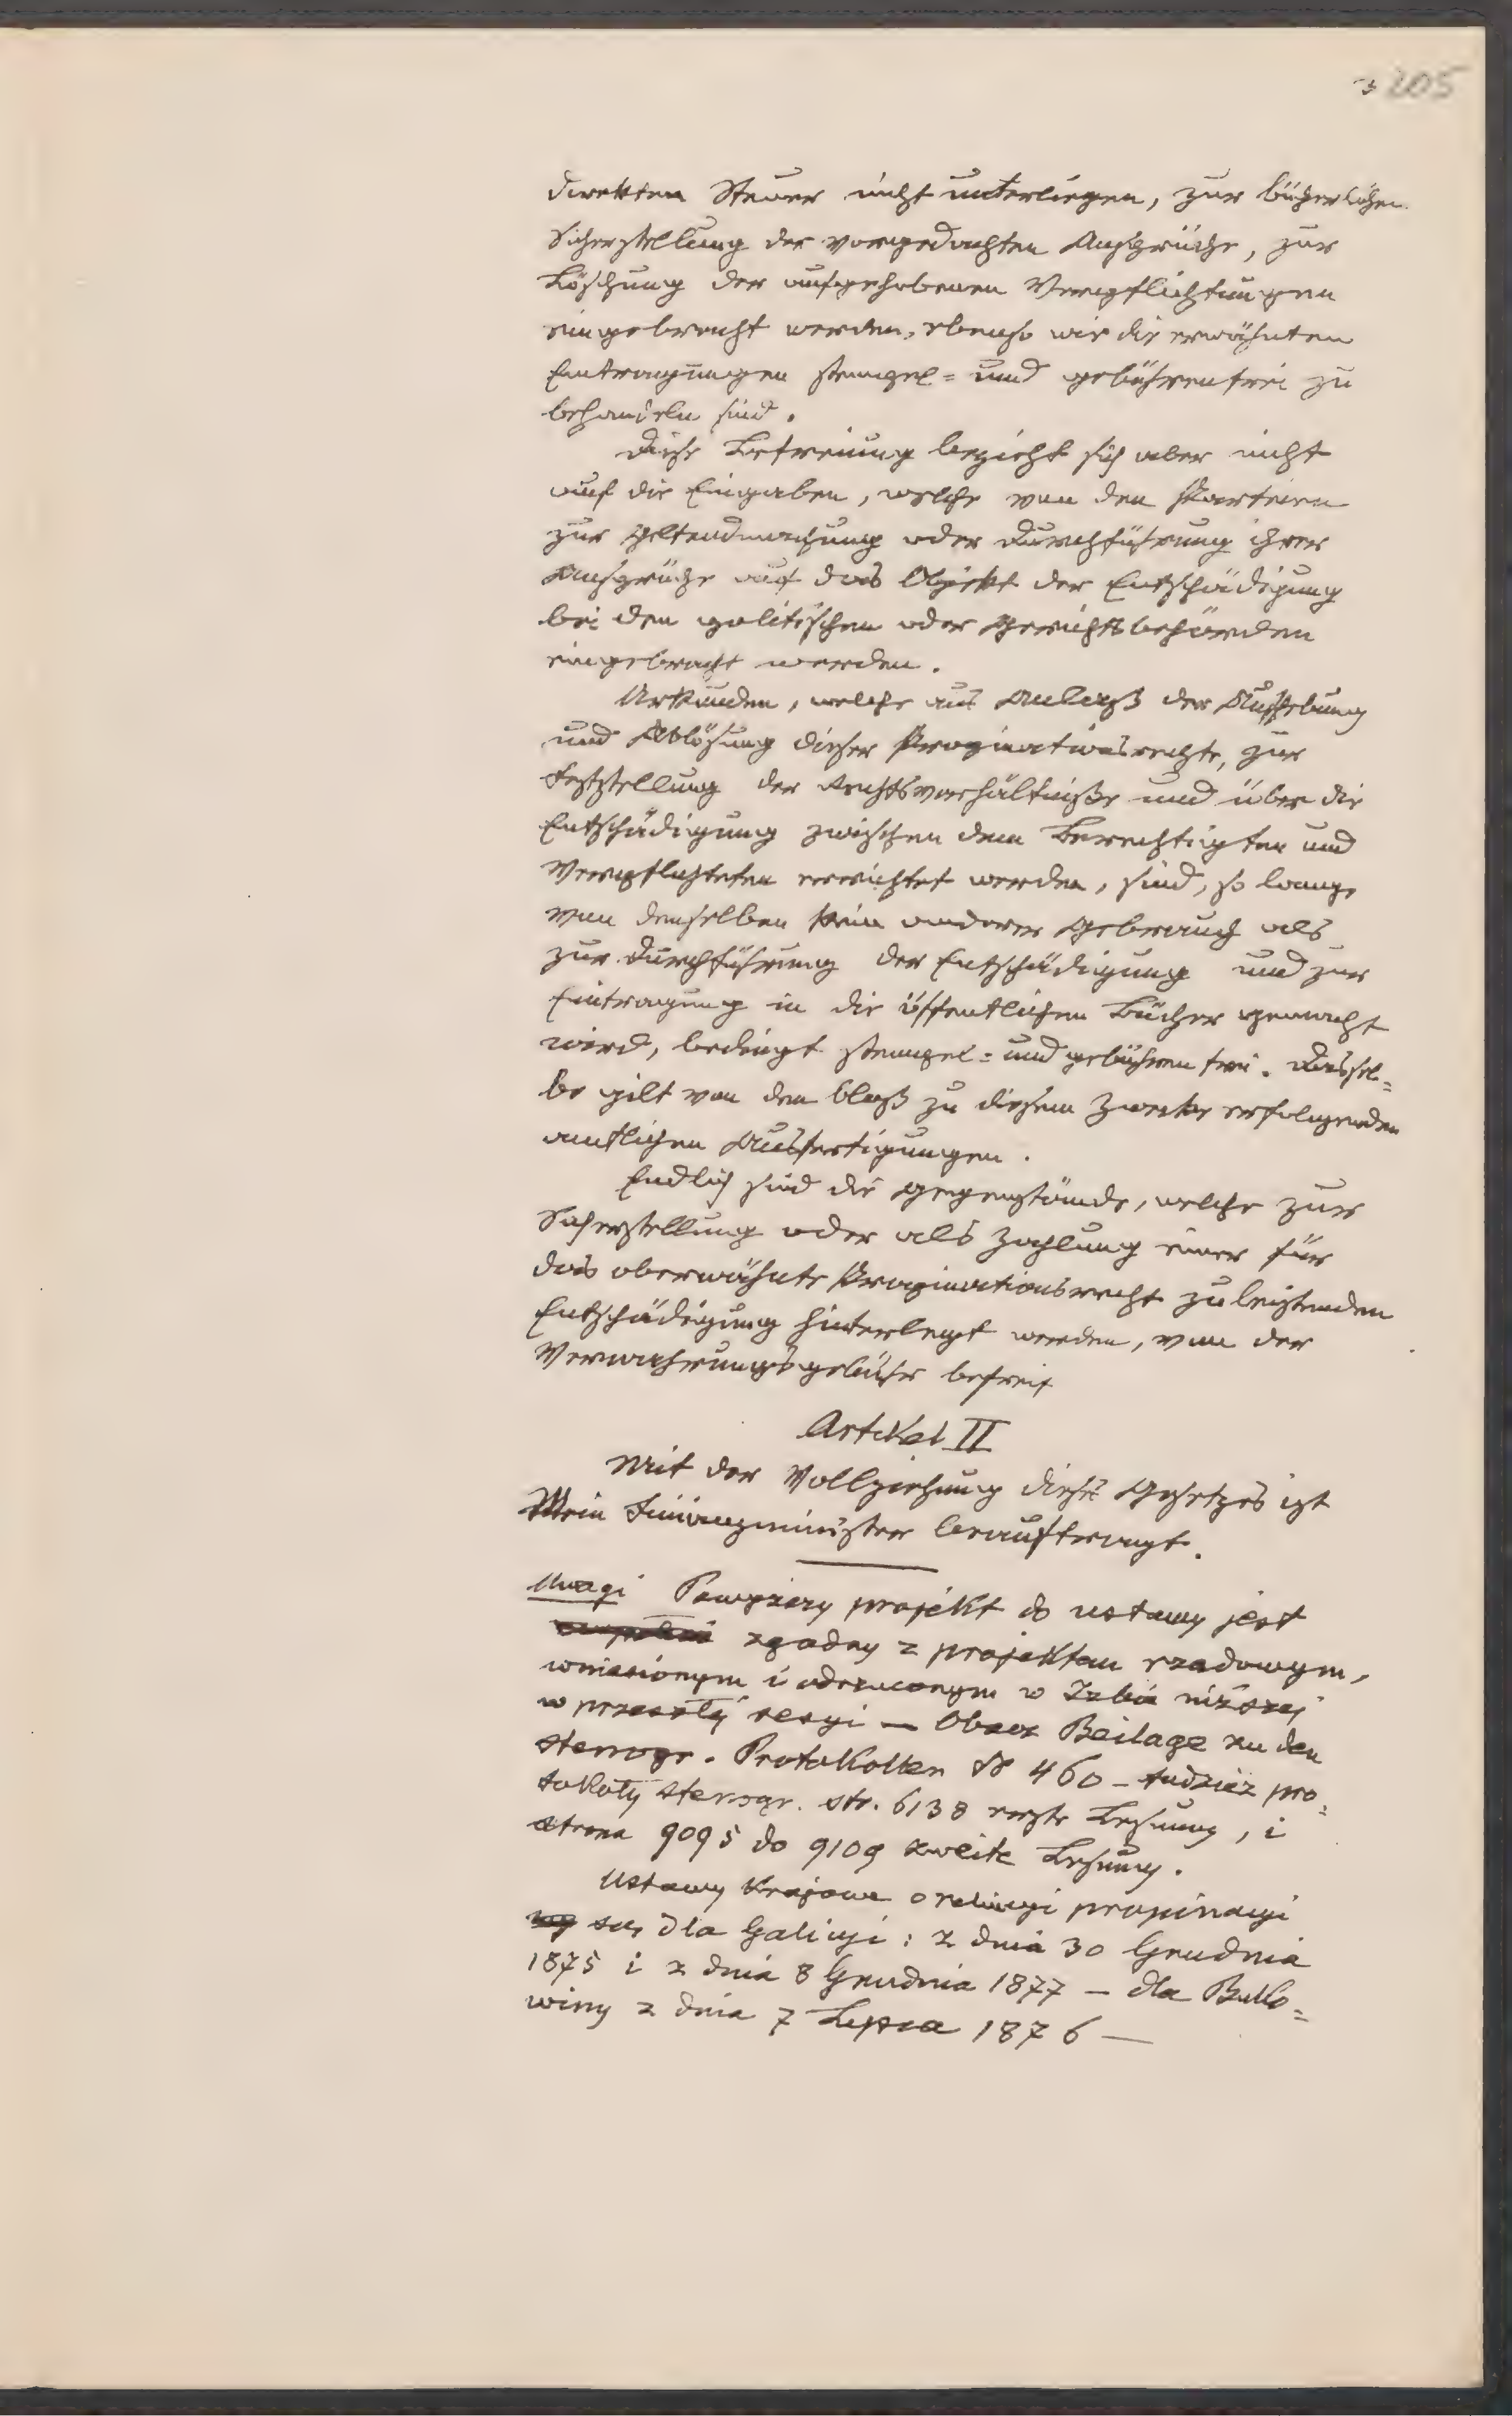 3 205
direkten Steuer nicht unterliegen, zur bücherlichen
Sicherstellung der vorgedachten Ansprüche, zur
Löschung der aufgehobenen Verpflichtungen
eingebracht werden, ebenso wie die erwähnten
Eintragungen stempel= und gebührenfrei zu
behandeln sind.
Diese Befreiung bezieht sich aber nicht
auf die Eingaben, welche von den Parteien
zur Geltendmachung oder Durchführung ihrer
Ansprüche auf das Objekt der Entschädigung
bei den politischen oder Gerichtsbehörden
eingebracht werden.
Urkunden, welche aus Anlaß der Aufhebung
und Ablösung dieser Propinationsrechte, zur
Feststellung der Rechtsverhältniße und über die
Entschädigung zwischen dem Berechtigten und
Verpflichteten errichtet werden, sind, so lange
von denselben kein anderer Gebrauch als
zur Durchführung der Entschädigung und zur
Eintragung in die öffentlichen Bücher gemacht
wird, bedingt stempel= und gebührenfrei. Dassel=
be gilt von den bloß zu diesem Zwecke erfolgenden
amtlichen Ausfertigungen.
Endlich sind die Gegenstände, welche zur
Sicherstellung oder als Zahlung einer für
das oberwähnte Propinationsrecht zu leistenden
Entschädigung hinterlegt werden, von der
Verwahrungsgebühr befreit
Artikel II
Mit der Vollziehung dieses Gesetzes ist
Mein Finanzminister beauftragt.
Uwagi Powyższy projekt do ustawy jest
zgodny z projektem rządowym,
wniesionym i odrzuconym w Izbie niższej
w przeszłej sesyi — Obacz Beilage zu den
stenogr. Protokollen № 460 – tudzież pro=
tokoły stenogr. str. 6138 erste Lesung, i
strona 9095 do 9109 zweite Lesung.
Ustawy krajowe o propinacyi
są dla Galicyi: z dnia 30 Grudnia
1875 i z dnia 8 Grudnia 1877 — dla Buko=
winy z dnia 7 Lipca 1876 —